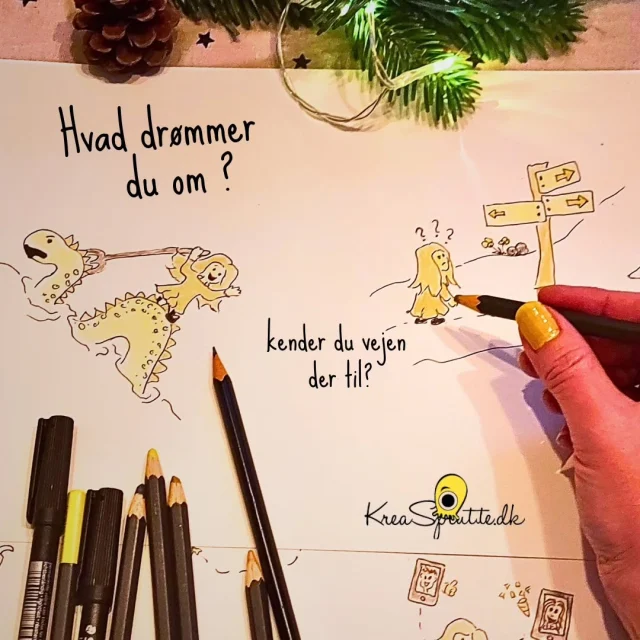 Hvad drømmer
du om ?
? ? ?
kender du vejen
der til?
KreaSprutte.dk